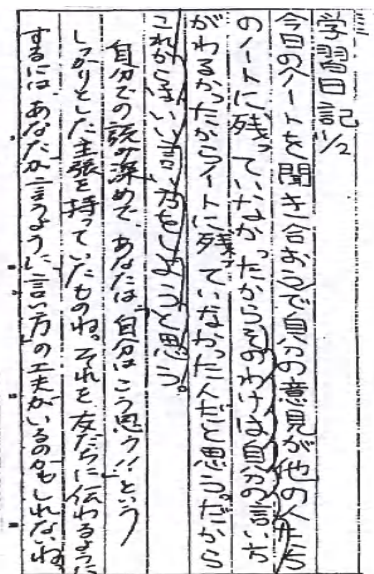 学習日記 1/2
今日のノートを聞き合おうで自分の意見が他の人たち
のノートに残っていなかったからそのわけは自分の言い方
がわるかったからノートに残っていなかったんだと思う。だから
これからはいい言い方をしようと思う。
自分での読み深めで、あなたは「自分はこう思う!!」という
しっかりとした主張を持っていたものね。それを、友だちに伝わるように
するには、あなたが言うように言い方の工夫がいるのかもしれないね。